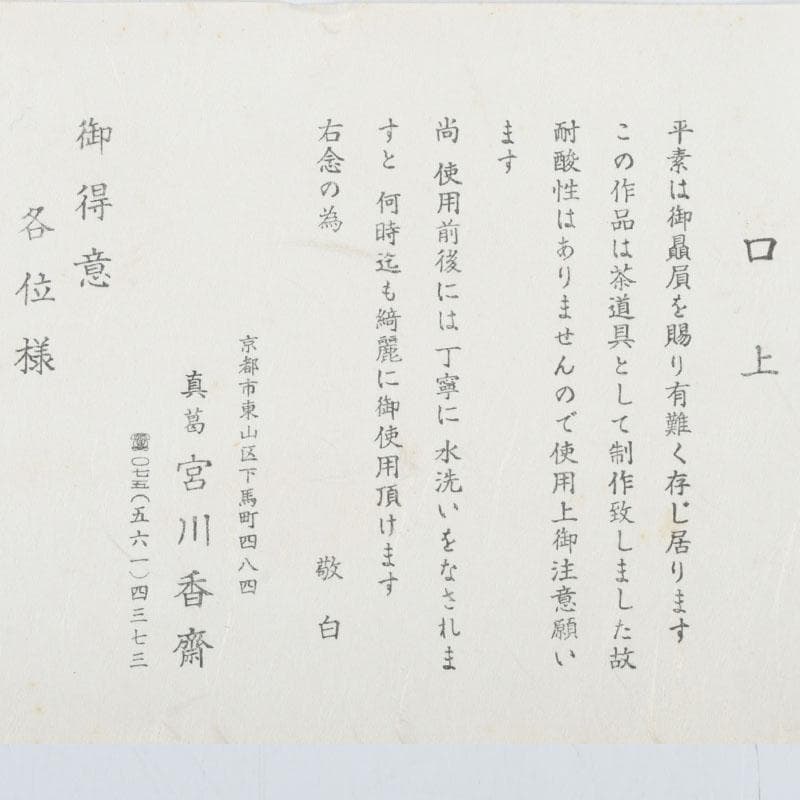 口上
平素は御贔屓を賜り有難く存じ居ります
この作品は茶道具として制作致しました故
耐酸性はありませんので使用上御注意願い
ます
尚 使用前後には丁寧に水洗いをなされま
すと 何時迄も綺麗に御使用頂けます
右念の為 敬白
京都市東山区下馬町四八四
真葛 宮川香齋
〇七五(五六一)四三七三
御得意
各位様